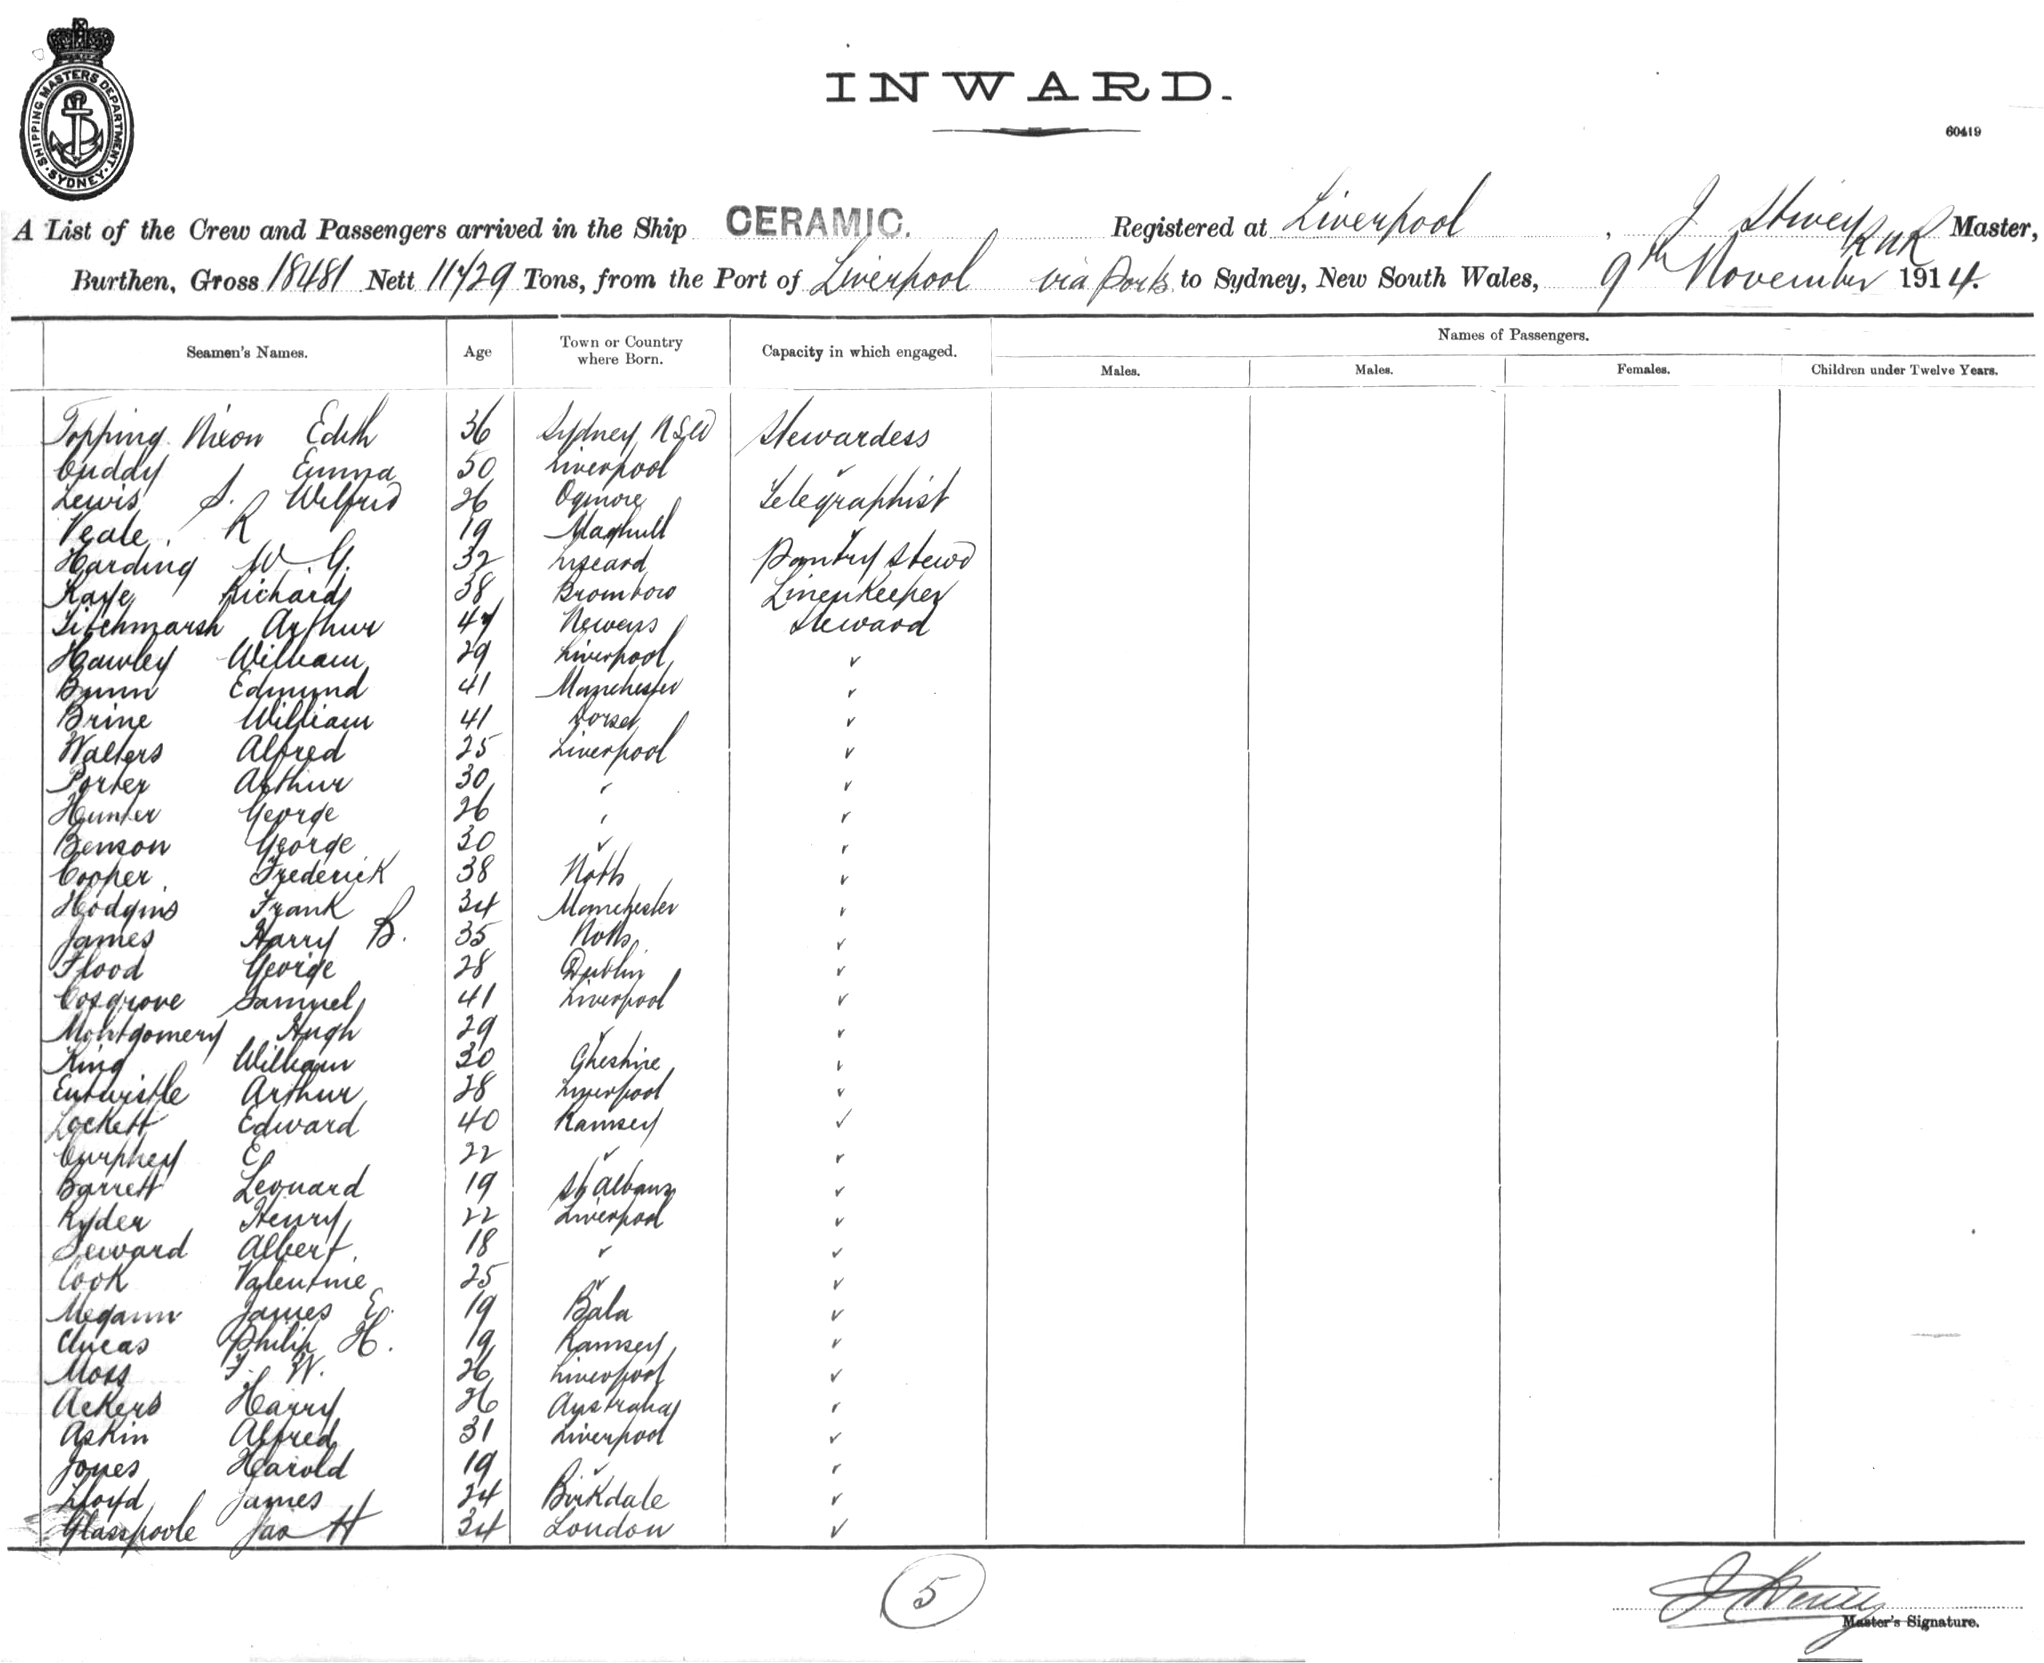 SHIPPING MASTERS DEPARTMENT SYDNEY
INWARD.
60419
A List of the Crew and Passengers arrived in the Ship CERAMIC. Registered at Liverpool, J RNR Master,
Burthen, Gross 18481 Nett 11729 Tons, from the Port of Liverpool via Ports to Sydney, New South Wales, 9th November 1914.
Seamen's Names. Age Town or Country where Born. Capacity in which engaged. Names of Passengers.
Males. Males. Females. Children under Twelve Years.
Topping Nixon Edith 36 Sydney NSW Stewardess
Cuddy Emma 50 Liverpool "
Lewis S. Wilfrid 26 Ogmore Telegraphist
Veale. R 19 Maghull "
Harding W. G. 32 Liscard Pantry Stewd
Kaye Richard 38 Bromboro Linenkeeper
Titchmarsh Arthur 47 Steward
Hawley William 29 Liverpool "
Bunn Edmund 41 Manchester "
Brine William 41 Dorset "
Walters Alfred 25 Liverpool "
Porter Arthur 30 " "
Hunter George 26 " "
Benson George 30 " "
Cooper Frederick 38 Notts "
Hodgins Frank 34 Manchester "
James Harry B. 35 Notts "
Flood George 28 Dublin "
Cosgrove Samuel 41 Liverpool "
Montgomery Hugh 29 " "
King William 30 Cheshire "
Entwistle Arthur 28 Liverpool "
Lockett Edward 40 Ramsey "
Curphey E 22 " "
Barrett Leonard 19 St Albans "
Ryder Henry 22 Liverpool "
Seward Albert. 18 " "
Cook Valentine 25 " "
Megann James E. 19 Bala "
Clucas Philip H. 19 Ramsey "
Moss F. W. 26 Liverpool "
Ackers Harry 26 Australia "
Askin Alfred 31 Liverpool "
Jones Harold 19 " "
Lloyd James 24 Birkdale "
Glasspoole Jas H 34 London "
5
Master's Signature.